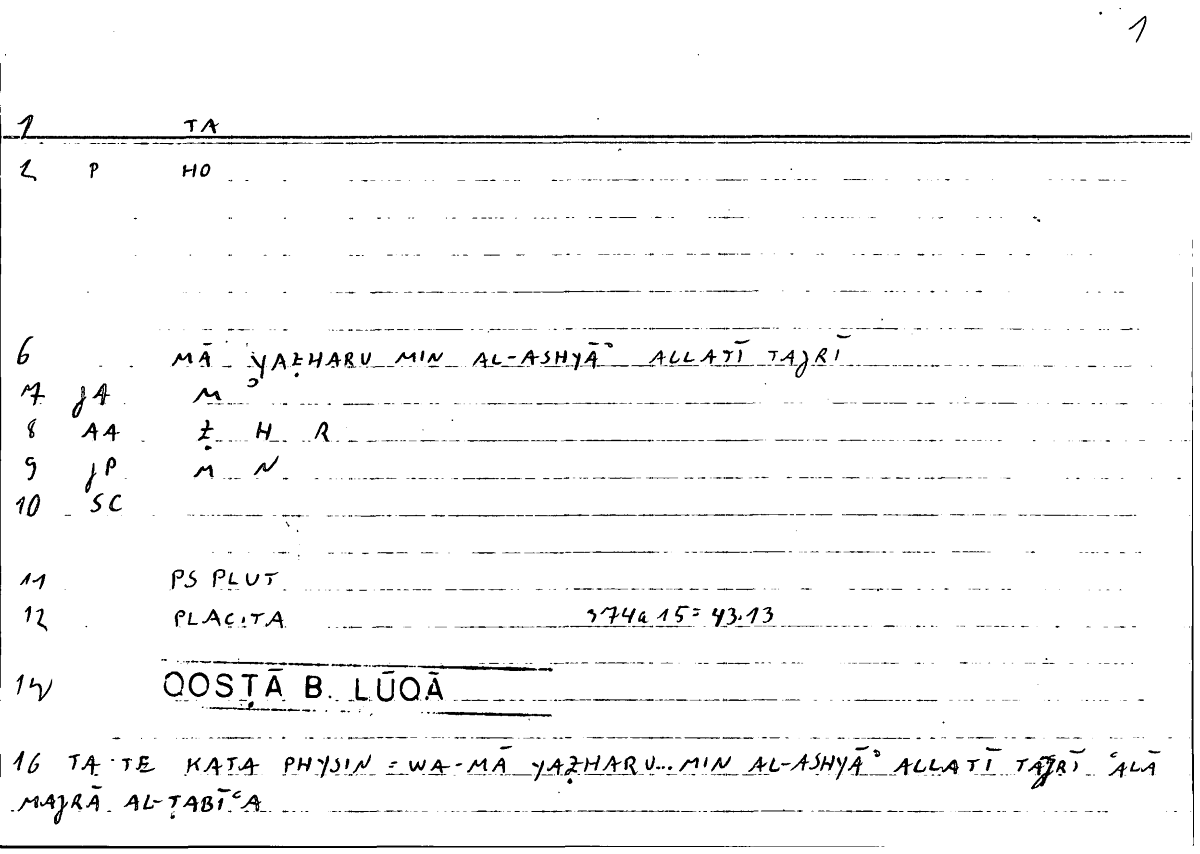 1
1 TA
2 P HO
6 MĀ YAẒHARU MIN AL-ASHYĀʾ ALLATĪ TAJRĪ
7 JA Mʾ
8 AA Ẓ H R
9 JP M N
10 SC
11 PS PLUT
12 PLACITA 374a 15 = 43.13
14 QOSṬĀ B. LŪQĀ
16 TA TE KATA PHYSIN = WA-MĀ YAẒHARU... MIN AL-ASHYĀʾ ALLATĪ TAJRĪ ʿALĀ
MAJRĀ AL-ṬABĪʿA